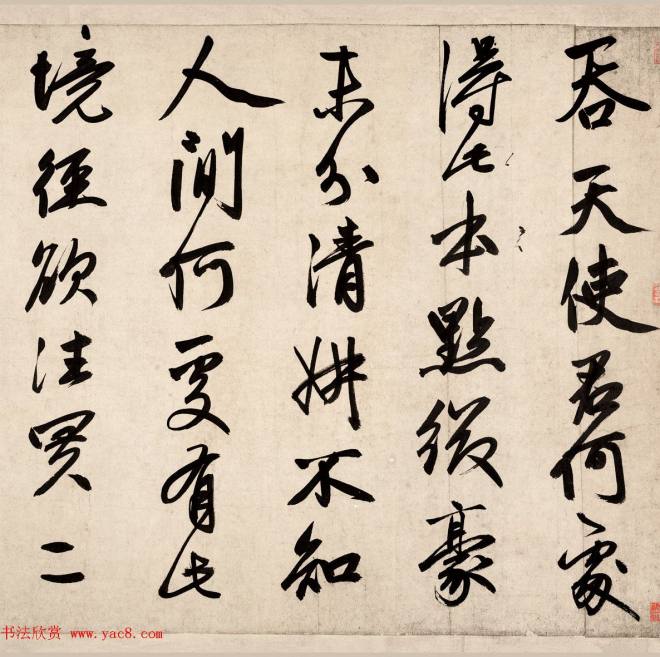 吞天使君何處
得此本點綴豪
末分清妍不知
人間何處有此
境徑欲往買二
书法欣赏 www.yac8.com